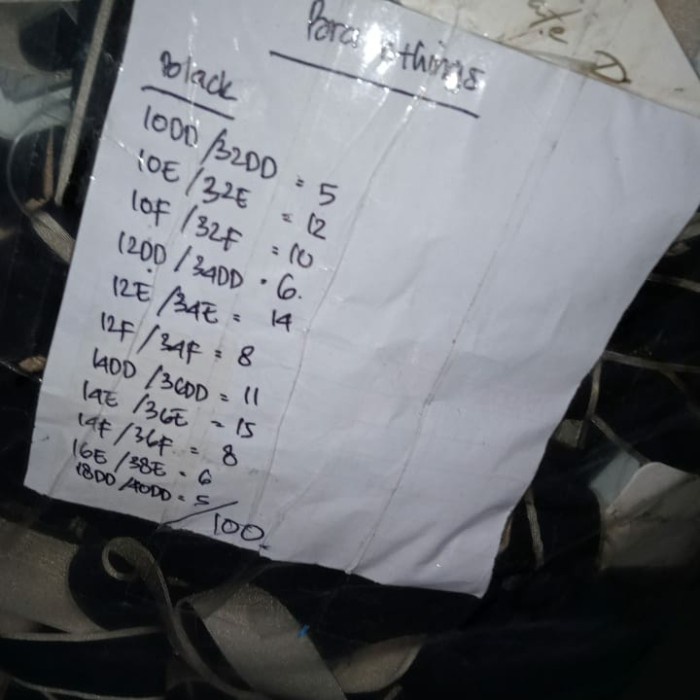 things
Black
10DD /32DD = 5
10E /32E = 12
10F /32F = 10
12DD /34DD = 6.
12E /34E = 14
12F /34F = 8
14DD /36DD = 11
14E /36E = 15
14F /36F = 8
16E /38E = 6
18DD /40DD = 5
/100